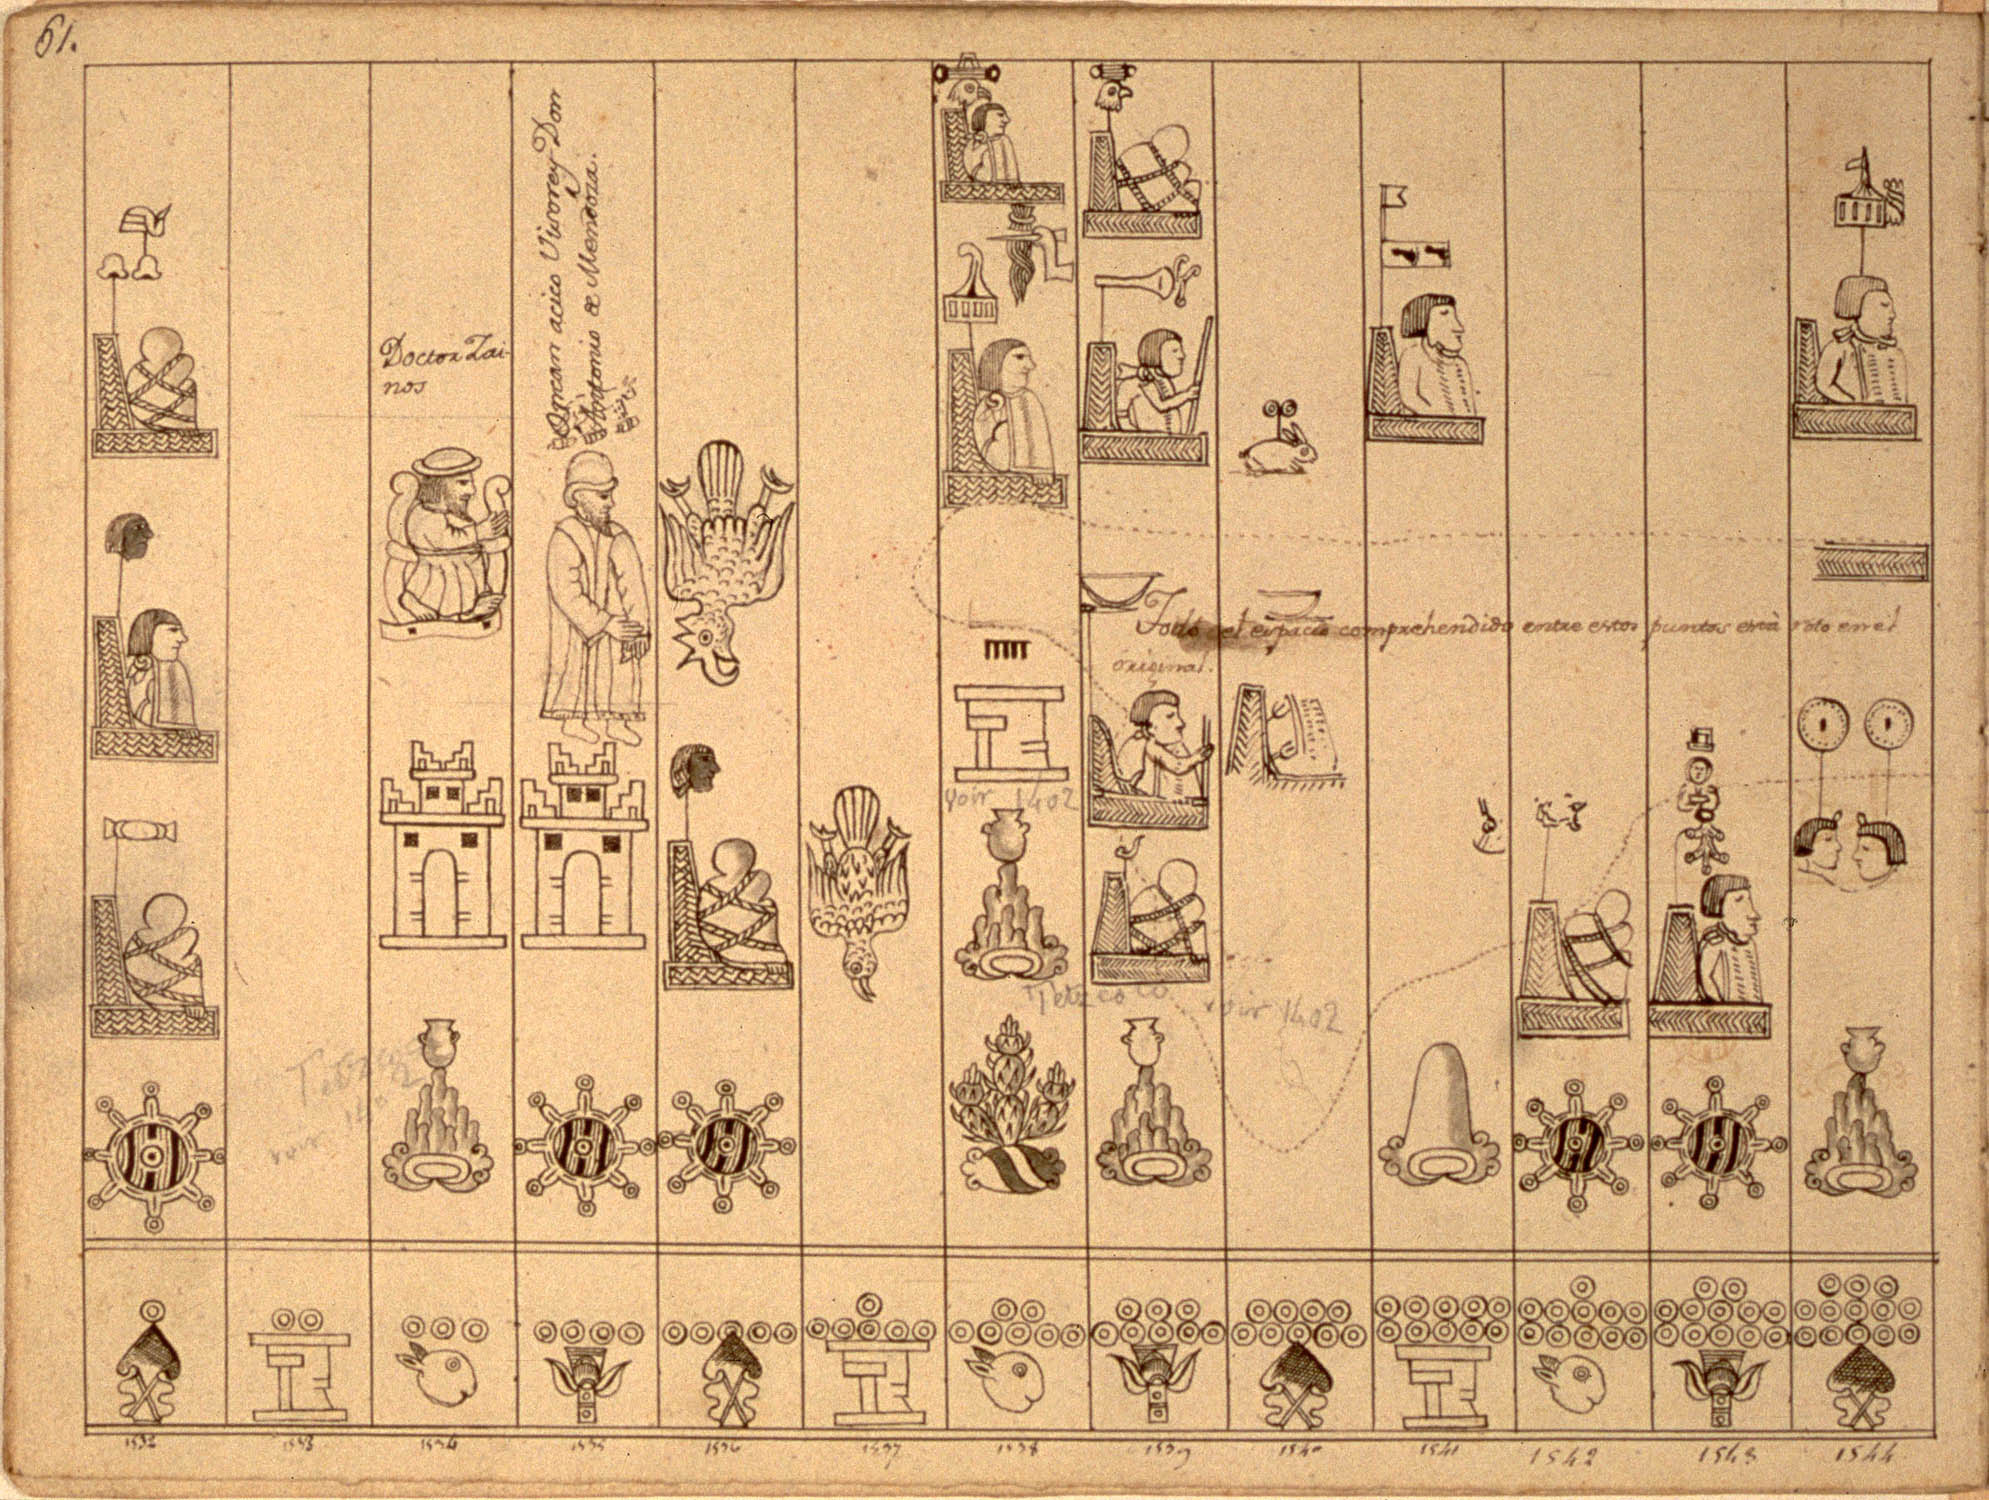 61.
Doctor Zai-
nos
acico Visorrey Don
Antonio de Mendoza.
Todo el espacio comprehendido entre estos puntos está roto en el
original.
voir 1402
Tetzcoco
voir 1402
1532
1533
1534
1535
1536
1537
1538
1539
1540
1541
1542
1543
1544